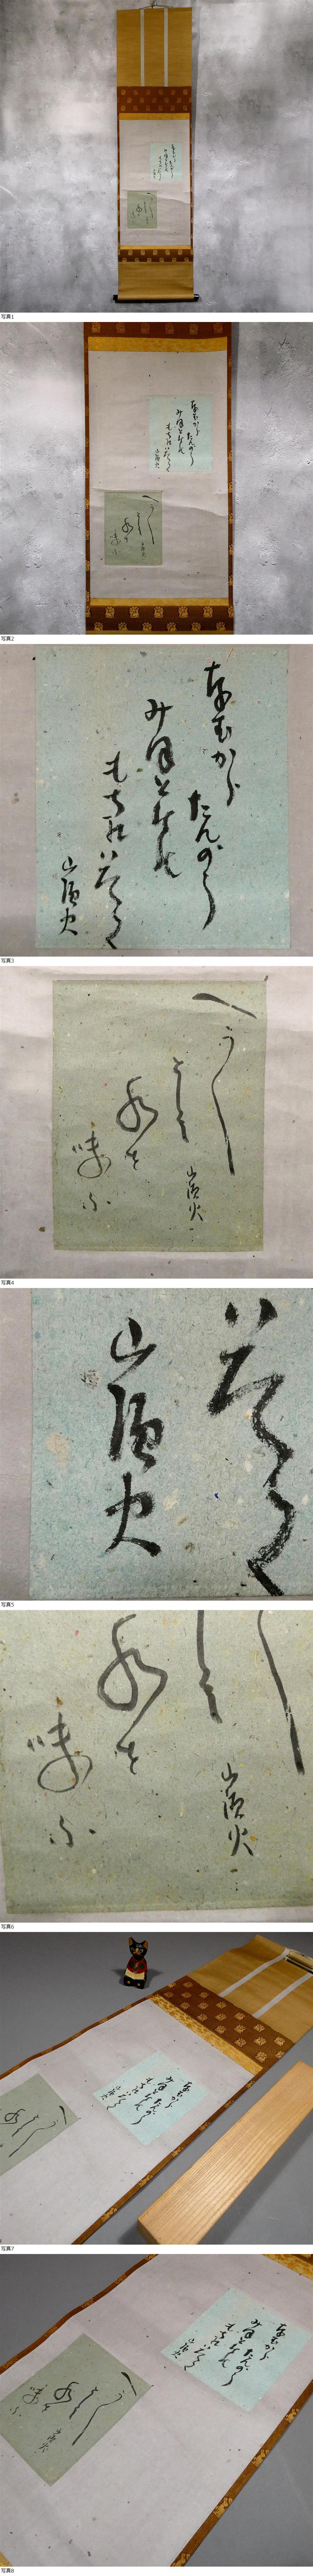 写真1
写真2
なむから
たんのう
みほとけの
もちひいたゞく
山頭火
写真3
へう〱
として
水を
味ふ
山頭火
写真4
山頭火
写真5
水を
味ふ
山頭火
写真6
写真7
写真8